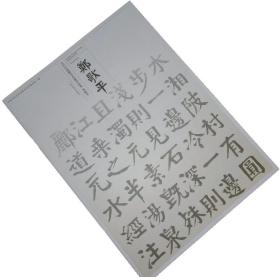 鄭歌平
水湘陂村有圓
步一邊冷一邊
淺則見石深則
且濁元素既殊
江乘之半湯泉
酈道元水經注